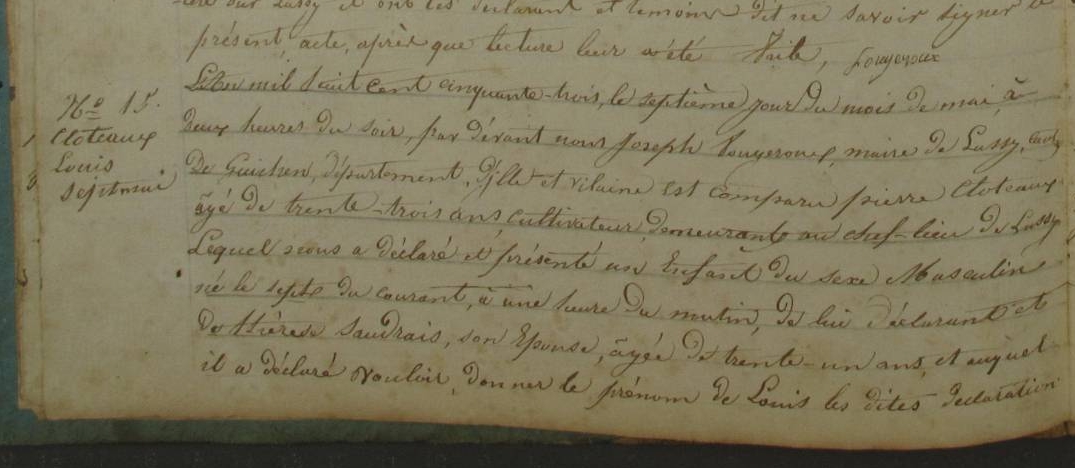 -cle sur Lassy et ont les déclarant et temoins dit ne savoir signer le
présent, acte, après que lecture leur a été Faite, Fougeroux
N° 15.
Cloteaux
Louis
Sept mai
L'An mil huit Cent cinquante-trois, le septième jour du mois de mai, à
deux heures du soir, par dévant nous Joseph Fougeroux, maire de Lassy, cant
de Guichen, département, d'jlle et vilaine est comparu pierre Cloteaux
âgé de trente-trois ans cultivateur, demeurant au chef-lieu de Lassy
Lequel nous a déclaré et présenté un Enfant du sexe Masculin
né le sept du courant, à une heure du matin, de lui déclarant et
de thérese Saudrais, son Epouse, âgée de trente-un ans, et auquel
il a déclaré vouloir, donner le prénom de Louis les dites declaration